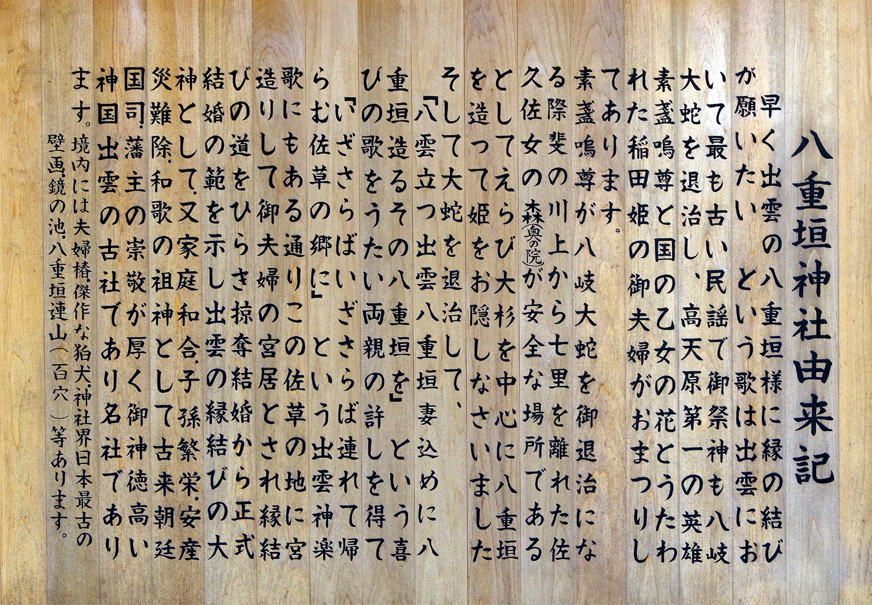 八重垣神社由来記
早く出雲の八重垣様に縁の結び
が願いたい という歌は出雲にお
いて最も古い民謡で御祭神も八岐
大蛇を退治し、高天原第一の英雄
素盞嗚尊と国の乙女の花とうたわ
れた稲田姫の御夫婦がおまつりし
てあります。
素盞嗚尊が八岐大蛇を御退治にな
る際斐の川上から七里を離れた佐
久佐女の森(奥の院)が安全な場所である
としてえらび大杉を中心に八重垣
を造って姫をお隠しなさいました
そして大蛇を退治して、
「八雲立つ出雲八重垣妻込めに八
重垣造るその八重垣を」 という喜
びの歌をうたい両親の許しを得て
「いざさらばいざさらば連れて帰
らむ佐草の郷に」 という出雲神楽
歌にもある通りこの佐草の地に宮
造りして御夫婦の宮居とされ縁結
びの道をひらき掠奪結婚から正式
結婚の範を示し出雲の縁結びの大
神として、又家庭和合、子孫繁栄、安産
災難除、和歌の祖神として古来朝廷
国司、藩主の崇敬が厚く御神徳高い
神国出雲の古社であり名社であり
ます。境内には夫婦椿傑作な狛犬、神社界日本最古の
壁画、鏡の池、八重垣連山(百穴)等あります。